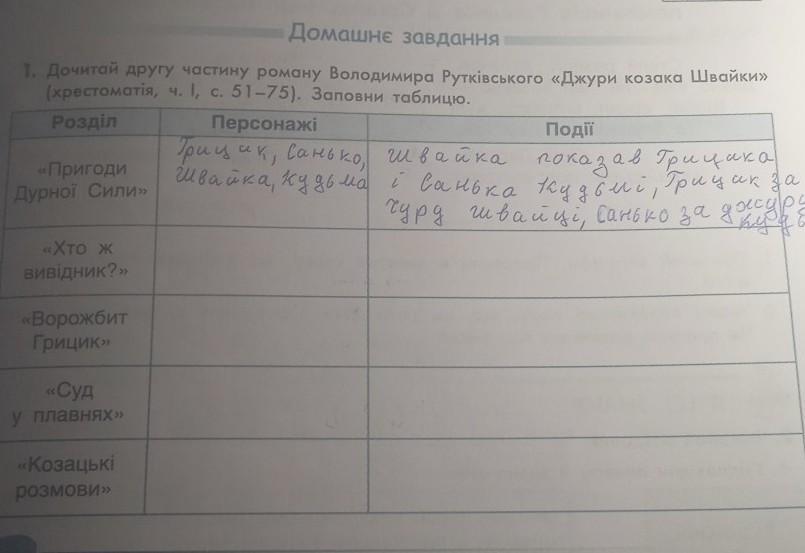 Домашнє завдання
1. Дочитай другу частину роману Володимира Рутківського «Джури козака Швайки»
(хрестоматія, ч. I, с. 51–75). Заповни таблицю.
Розділ Персонажі Події
«Пригоди
Дурної Сили»
Грицик, Санько,
Швайка, Кудьма
Швайка показав Грицика
і Санька Кудьмі, Грицик за
чуру Швайці, Санько за джуру
«Хто ж
вивідник?»
«Ворожбит
Грицик»
«Суд
у плавнях»
«Козацькі
розмови»